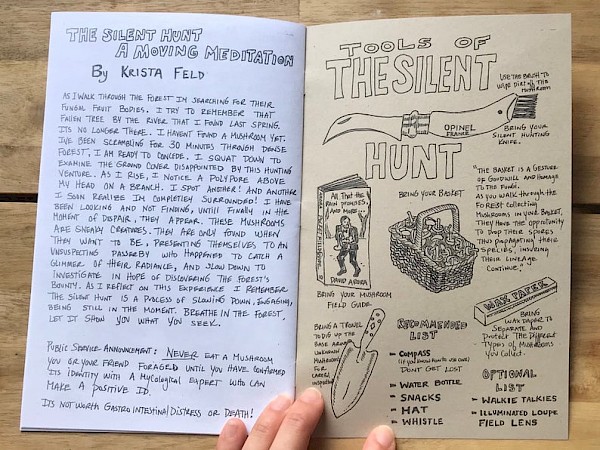 THE SILENT HUNT
A MOVING MEDITATION
By KRISTA FELD
AS I WALK THROUGH THE FOREST IM SEARCHING FOR THEIR
FUNGAL FRUIT BODIES. I TRY TO REMEMBER THAT
FALLEN TREE BY THE RIVER THAT I FOUND LAST SPRING.
ITS NO LONGER THERE. I HAVENT FOUND A MUSHROOM YET.
I'VE BEEN SCRAMBLING FOR 30 MINUTES THROUGH DENSE
FOREST, I AM READY TO CONCEDE. I SQUAT DOWN TO
EXAMINE THE GROUND COVER DISAPPOINTED BY THIS HUNTING
VENTURE. AS I RISE, I NOTICE A POLYPORE ABOVE
MY HEAD ON A BRANCH. I SPOT ANOTHER! AND ANOTHER
I SOON REALIZE IM COMPLETLY SURROUNDED! I HAVE
BEEN LOOKING AND NOT FINDING, UNTILL FINALLY IN THE
MOMENT OF DESPAIR, THEY APPEAR. THESE MUSHROOMS
ARE SNEAKY CREATURES. THEY ARE ONLY FOUND WHEN
THEY WANT TO BE, PRESENTING THEMSELVES TO AN
UNSUSPECTING PASSERBY WHO HAPPENED TO CATCH A
GLIMMER OF THEIR RADIANCE, AND SLOW DOWN TO
INVESTIGATE IN HOPE OF DISCOVERING THE FOREST'S
BOUNTY. AS I REFLECT ON THIS EXPERIENCE I REMEMBER
THE SILENT HUNT IS A PROCESS OF SLOWING DOWN, ENGAGING,
BEING STILL IN THE MOMENT. BREATHE IN THE FOREST,
LET IT SHOW YOU WHAT YOU SEEK.
Public Service Announcement: NEVER EAT A MUSHROOM
YOU OR YOUR FRIEND FORAGED UNTIL YOU HAVE CONFIRMED
ITS IDENTITY WITH A MYCOLOGICAL EXPERT WHO CAN
MAKE A POSITIVE ID.
ITS NOT WORTH GASTROINTESTINAL DISTRESS OR DEATH!
TOOLS OF
THE SILENT
HUNT
USE THE BRUSH TO
WIPE DIRT OFF THE
MUSHROOM
OPINEL
FRANCE
BRING YOUR
SILENT HUNTING
KNIFE.
All That the
Rain Promises,
AND MORE...
DAVID ARORA
BRING YOUR MUSHROOM
FIELD GUIDE
BRING YOUR BASKET
"THE BASKET IS A GESTURE
OF GOODWILL AND HOMAGE
TO THE FUNGI.
AS YOU WALK THROUGH THE
FOREST COLLECTING
MUSHROOMS IN YOUR BASKET,
THEY HAVE THE OPPORTUNITY
TO DROP THEIR SPORES
THUS PROPAGATING THEIR
SPECIES, INSURING
THEIR LINEAGE
CONTINUE."
WAX PAPER
BRING
WAX PAPER TO
SEPARATE AND
PROTECT THE DIFFERENT
TYPES OF MUSHROOMS
YOU COLLECT.
BRING A TROWEL
TO DIG UP THE
BASE AROUND
UNKNOWN
MUSHROOMS
FOR
RECOMMENDED
LIST
COMPASS
(IF YOU KNOW HOW TO USE ONE)
DON'T GET LOST
WATER BOTTLE
SNACKS
HAT
WHISTLE
OPTIONAL
LIST
WALKIE TALKIES
ILLUMINATED LOUPE
FIELD LENS